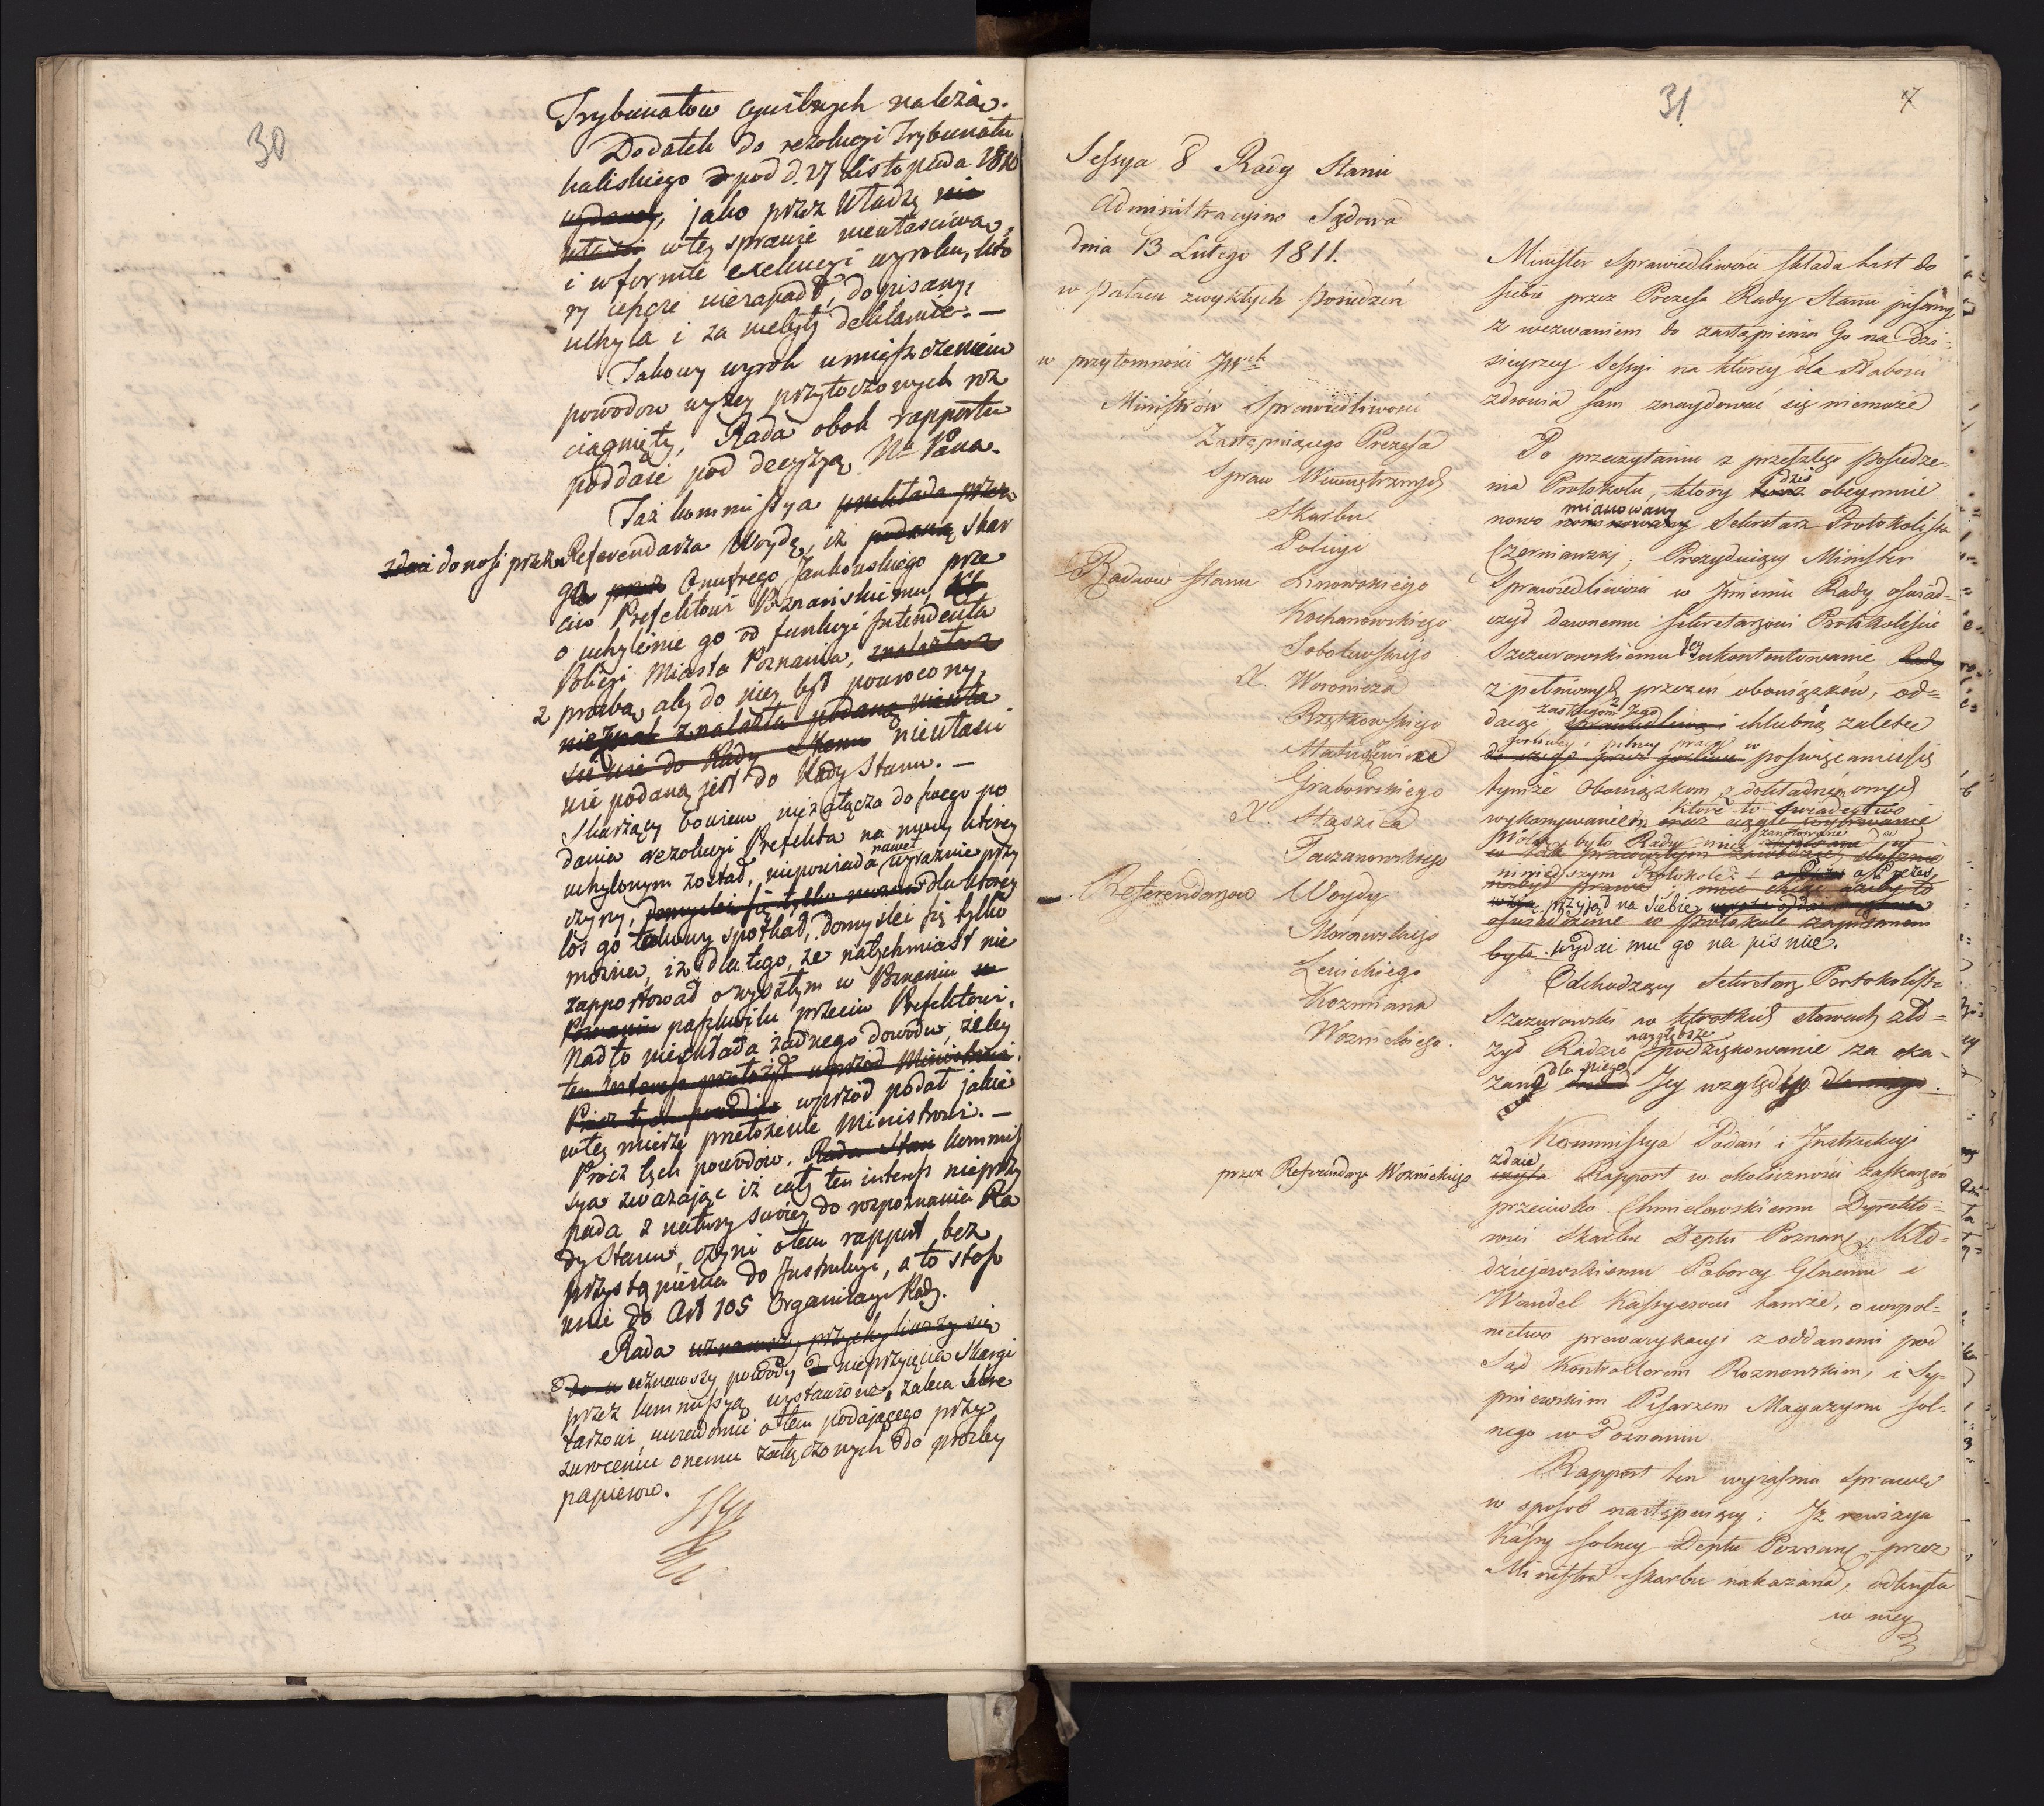 30
Trybunałow cywilnych należą.
Dodatek do rezolucyi Trybunału
kaliskiego pod d. 27 Listopada 1810
wydaney, jako przez Władzę nie
w tey sprawie niewłaściwą,
i w formie exekucyi wyroku, któ
ry ieszcze nierapadł, dopisany,
uchyla i za niebyły deklaruie. —
Takowy wyrok umieszczeniem
powodow wyżey przytoczonych roz
ciągnięty, Rada obok rapportu
poddaie pod decyzyą N. Pana.
Taż kommissya przekłada przez
zdaie donosi przez Referendarza Woydę, iż podaną skar
gą przez Onufrego Jankowskiego prze
ciw Prefektowi Poznańskiemu,
o uchylenie go od funkcyi Intendenta
Policyi Miasta Poznania, znalazła
z prozbą, aby do niey był powrocony,
znalazła podaną niewła
ściwie do Rady Stanu niewłaści
wie podaną jest do Rady Stanu. —
Skarżący bowiem niezałącza do swego po
dania rezolucyi Prefekta na mocy ktorey
uchylonym został, niepowiada nawet wyraźnie przy
czyny, domyslać się tylko można dla ktorey
los go takowy spotkał, domyslać się tylko
można, iż dla tego, że natychmiast nie
rapportował o wyszłym w Poznaniu w
Poznaniu paszkwilu przeciw Prefektowi.
Nadto nieskłada żadnego dowodu, żeby
ten interess przełożył wprzod Ministrowi.
Prócz tych powodów wprzód podał jakie
w tey mierze przełożenie Ministrowi. —
Prócz tych powodow, Rada Stanu kommis
sya zważając iż cały ten interess nieprzy
pada z natury swoiey do rozpoznania Ra
dy Stanu, czyni o tem rapport bez
przystąpienia do Instrukcyi, a to stoso
wnie do Art 105 Organizacyi Rady.
Rada uznawszy przychyliwszy się
do uznawszy powody do nieprzyięcia Skargi
przez kommissyą wystawione, zaleca Sekre
tarzowi, uwiadomić o tem podaiącego przy
zwroceniu onemu załączonych do prozby
papierow.
31.
7
Sessya 8 Rady Stanu
Administracyino Sądowa
dnia 13 Lutego 1811.
w Pałacu zwykłych posiedzeń
w przytomności JW
Ministrów Sprawiedliwości
Zastępuiącego Prezesa
Spraw Wewnętrznych
Skarbu
Policyi
Radcow Stanu Linowskiego
Kochanowskiego
Sobolewskiego
X. Woronicza
Bządkowskiego
Matuszewicza
Grabowskiego
X. Staszica
Tarzanowskiego
Referendarzow Woydy
Morawskiego
Lewickiego
Kozmiana
Woznickiego.
Minister Sprawiedliwości składa List do
siebie przez Prezesa Rady Stanu pisany,
z wezwaniem do zastąpienia Go na dzi-
sieyszey Sessyi na ktorey dla słabości
zdrowia sam znaydować się niemoże
Po przeczytaniu z przeszłego posiedze-
nia Protokołu, ktory teraz dziś obeymuie
nowo mianowany Sekretarz Protokolista
Czerniawski, Prezyduiący Minister
Sprawiedliwości w Jmieniu Rady, oświad-
czył dawnemu Sekretarzowi Protokoliście
Szczurowskiemu Jey ukontentowanie Rady
z pełnionych przezeń obowiązków, od-
daiąc zasługom Jego sprawiedliwą i chlubną zaletę
gorliwey i pilney pracy w poswięcaniu się
tymże obowiązkom, z dokładném onych
wykonywaniem oraz ciągłe które to swiadectwo
wolą było Rady mieć zanotowane w
ninieyszym Protokole; a Prezes,
przyiął na siebie
oświadczenie w Protokule zapisanem
było. wydać mu go na piśmie.
Odchodzący Sekretarz Protokolista
Szczurowski w krotkich słowach zło-
żył Radzie naygłębsze podziękowanie za oka-
zane dla niego Jey względy. dla niego.
przez Referendarza Woznickiego
Kommissyia Podań i Instrukcyi
zdaie czyta Rapport w okoliczności zaskarżeń
przeciwko Chmielewskiemu Dyrekto-
rowi Skarbu Deptu Poznań, Kło-
dziejewskiemu Poborcy Glnemu i
Wandel Kassyerowi tamże, o wspol-
nictwo prewarykacyi z oddanemi pod
Sąd Kontrollerem Roznowskim, i Sy-
pniewskim Pisarzem Magazynu sol-
nego w Poznaniu
Rapport ten wyiaśnia sprawę
w sposob następuiący: Iż rewizya
Kassy solney Deptu Poznań przez
Ministra Skarbu nakazana, odkryła
w niey